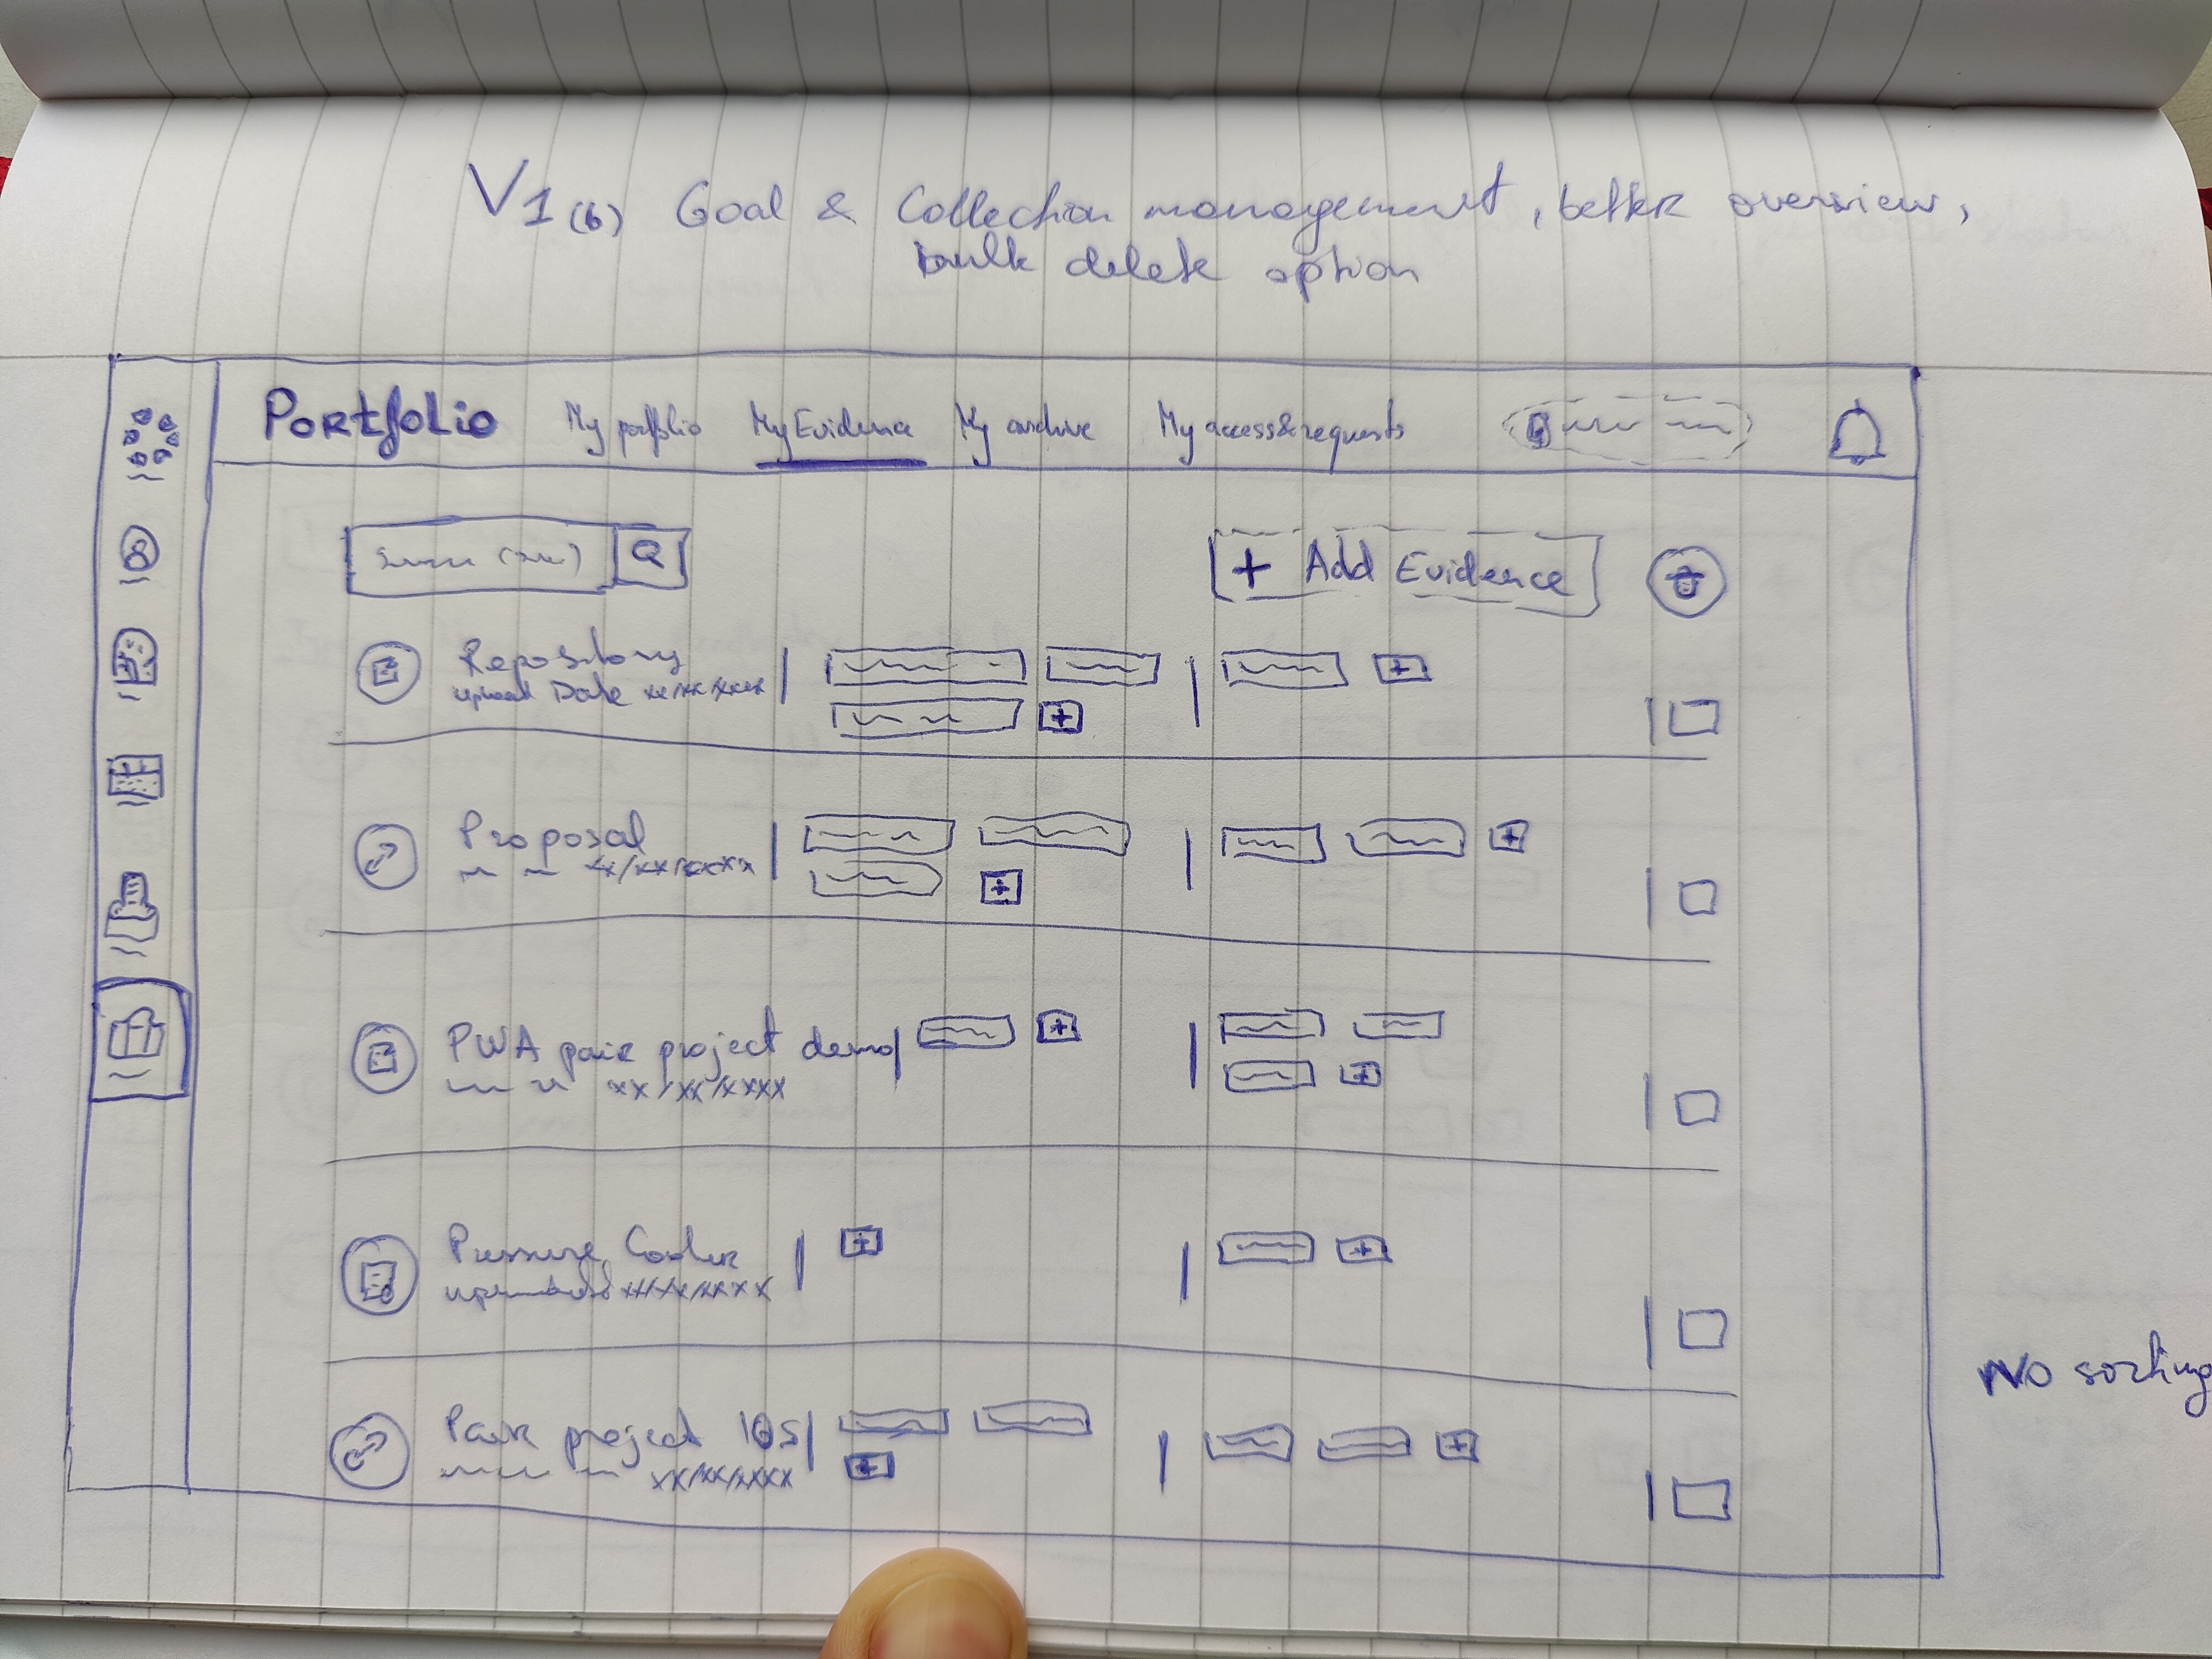 V1 (b) Goal & Collection management, better overview,
bulk delete option
Portfolio My portfolio My Evidence My archive My access&requests
+ Add Evidence
Repository
upload Date xx/xx/xxxx
Proposal
xx/xx/xxxx
PWA pair project demo
xx/xx/xxxx
Pressure Cooker
xx/xx/xxxx
No sorting
Pair project IOS
xx/xx/xxxx